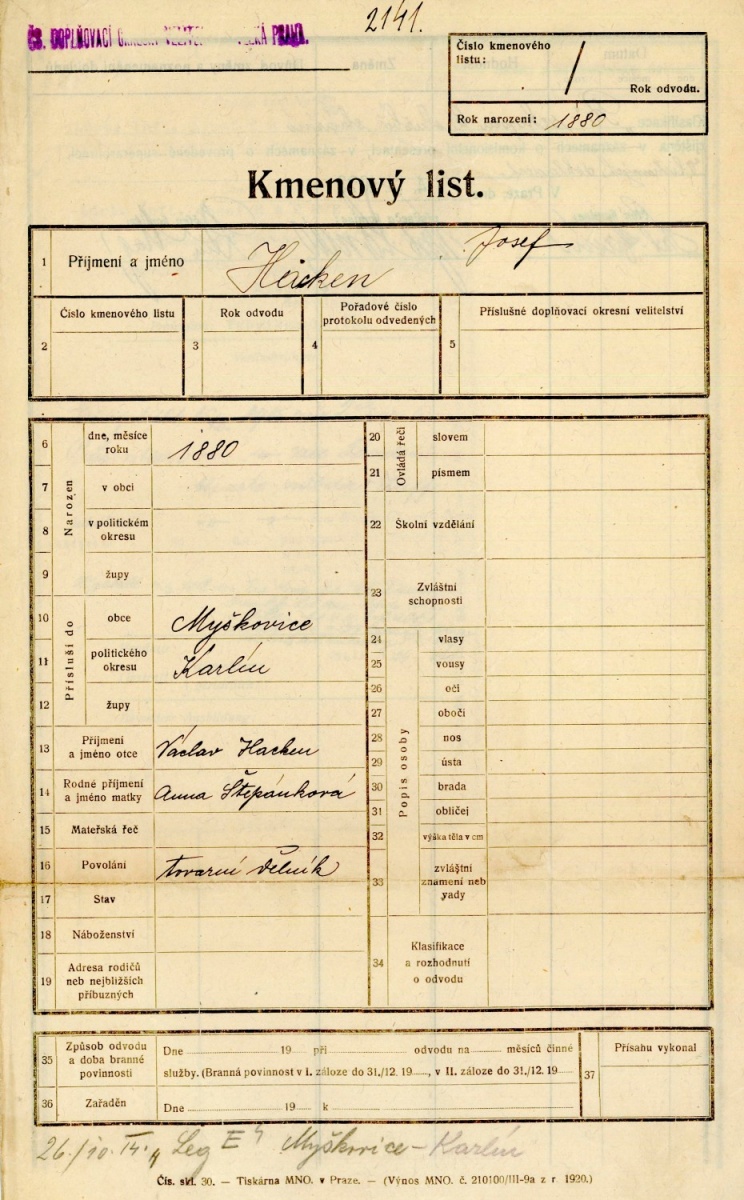 2141.
ČS. DOPLŇOVACÍ PRAHA.
Číslo kmenového
listu: /
Rok odvodu.
Rok narození: 1880
Kmenový list.
1 Příjmení a jméno Josef
2 Číslo kmenového listu
3 Rok odvodu
4 Pořadové číslo
protokolu odvedených
5 Příslušné doplňovací okresní velitelství
Narozen
6 dne, měsíce
roku 1880
7 v obci
8 v politickém
okresu
9 župy
Přísluší do
10 obce Myškovice
11 politického
okresu Karlín
12 župy
13 Příjmení
a jméno otce Václav Hacken
14 Rodné příjmení
a jméno matky Anna Štěpánková
15 Mateřská řeč
16 Povolání tovarní dělník
17 Stav
18 Náboženství
19 Adresa rodičů
neb nejbližších
příbuzných
Ovládá řeči
20 slovem
21 písmem
22 Školní vzdělání
23 Zvláštní
schopnosti
Popis osoby
24 vlasy
25 vousy
26 oči
27 obočí
28 nos
29 ústa
30 brada
31 obličej
32 výška těla v cm
33 zvláštní
znamení neb
vady
34 Klasifikace
a rozhodnutí
o odvodu
35 Způsob odvodu
a doba branné
povinnosti
Dne 19 při odvodu na měsíců činné
služby. (Branná povinnost v I. záloze do 31./12. 19, v II. záloze do 31./12. 19
36 Zařaděn
Dne 19 k
37 Přísahu vykonal
Myškovice - Karlín
Čís. skl. 30. — Tiskárna MNO. v Praze. — (Výnos MNO. č. 210100/III-9a z r. 1920.)